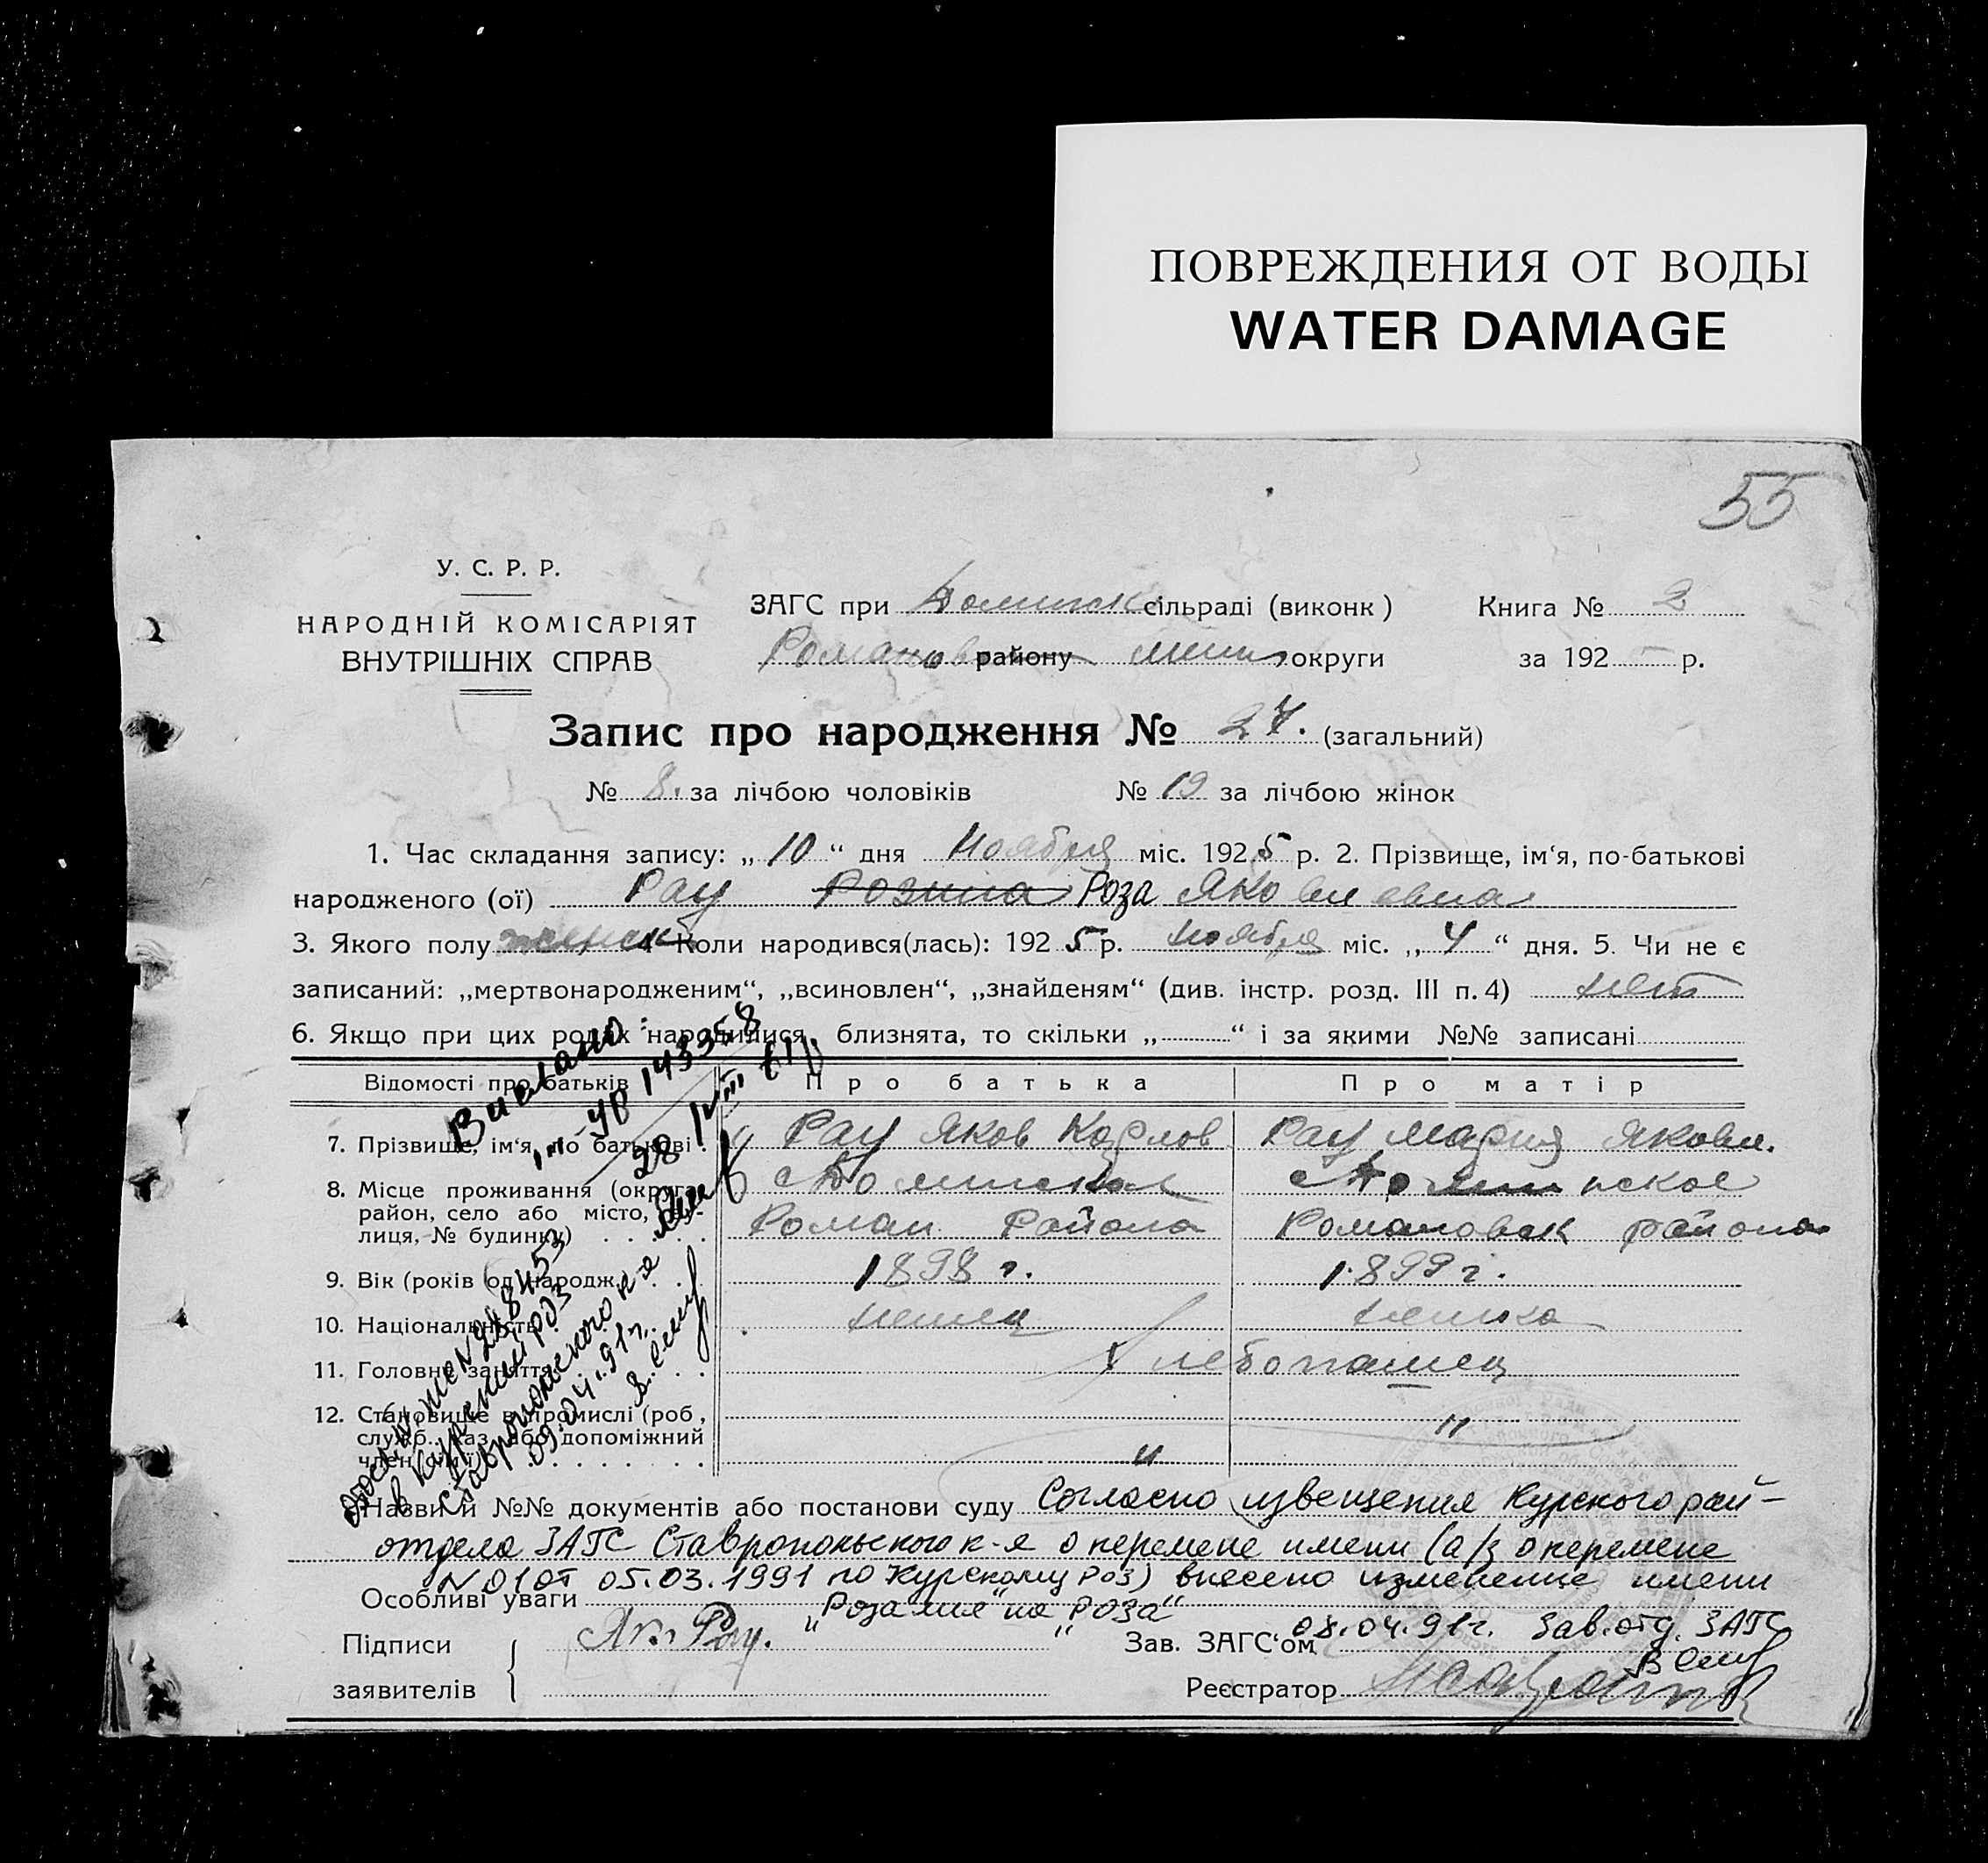 ПОВРЕЖДЕНИЯ ОТ ВОДЫ
WATER DAMAGE
55
У. С. Р. Р.
НАРОДНІЙ КОМІСАРІЯТ
ВНУТРІШНІХ СПРАВ
ЗАГС при сільраді (виконк)
Книга № 2
Романов району округи
за 192 р.
Запис про народження № 27. (загальний)
№ 8. за лічбою чоловіків № 19 за лічбою жінок
1. Час складання запису: „ 10 “ дня Ноября міс. 1925 р. 2. Прізвище, ім‘я, по-батькові
народженого (ої) Рау Розина Роза Яковлевна
3. Якого полу женск 4 Коли народився(лась): 1925 р. ноября міс. „ 4 “ дня. 5. Чи не є
записаний: „мертвонародженим“, „всиновлен“, „знайденям“ (див. інстр. розд. III п. 4) нет
6. Якщо при цих родах народилися близнята, то скільки „ “ і за якими №№ записані
Відомості про батьків
Про батька
Про матір
7. Прізвище, ім‘я, по батькові
Рау Яков Карлов
Рау Мария Яковл.
8. Місце проживання (округа,
район, село або місто, ву-
лиця, № будинку)
Роман Района
Романовск района
9. Вік (років од народж.)
1898 г.
1899 г.
10. Національність
немец
немка
11. Головне заняття
Хлебопашец
12. Становище в промислі (роб,
служб., хаз. або допоміжний
член сім‘ї)
"
"
Видано:
ЧР 143358
28/VIII 61 р.
№ 288453
в Курский роз
Ставропольского к-я
09.04.91г.
Назви й №№ документів або постанови суду Согласно извещения Курского рай-
отдела ЗАГС Ставропольского к-я о перемене имени (а/з о перемене
N 01 от 05.03.1991 по Курскому роз) внесено изменение имени
Особливі уваги „Розалия“ на „Роза“
08.04.91г. Зав. отд. ЗАГС
Підписи
заявителів
Як. Рау.
Зав. ЗАГС‘ом
Реєстратор